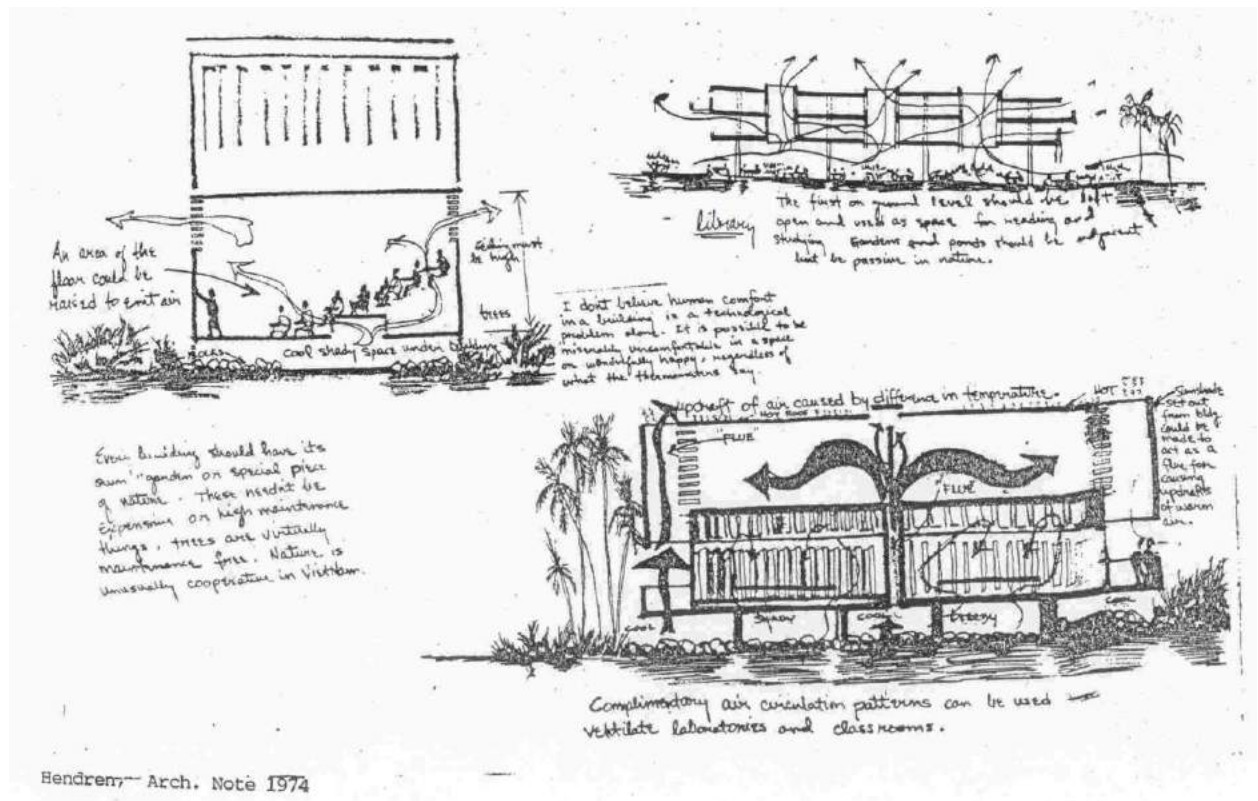 An area of the
floor could be
raised to emit air
ceiling must
be high
trees
ROCKS
cool shady space under building
library
The first or ground level should be left
open and used as space for reading and
studying. Gardens and ponds should be adjacent
but be passive in nature.
I don't believe human comfort
in a building is a technological
problem alone. It is possible to be
miserably uncomfortable in a space
or wonderfully happy, regardless of
what the thermometers say.
Every building should have its
own "garden or special piece
of nature. These needn't be
expensive or high maintenance
things, trees are virtually
maintenance free. Nature is
unusually cooperative in Vietnam.
updraft of air caused by difference in temperature.
HOT ROOF
HOT
"FLUE"
"FLUE"
Sunshade
set out
from bldg
could be
made to
act as a
flue for
causing
updrafts
of warm
air.
COOL
SHADY
COOL
BREEZY
COOL
Complimentary air circulation patterns can be used to
ventilate laboratories and classrooms.
Hendren, Arch. Note 1974